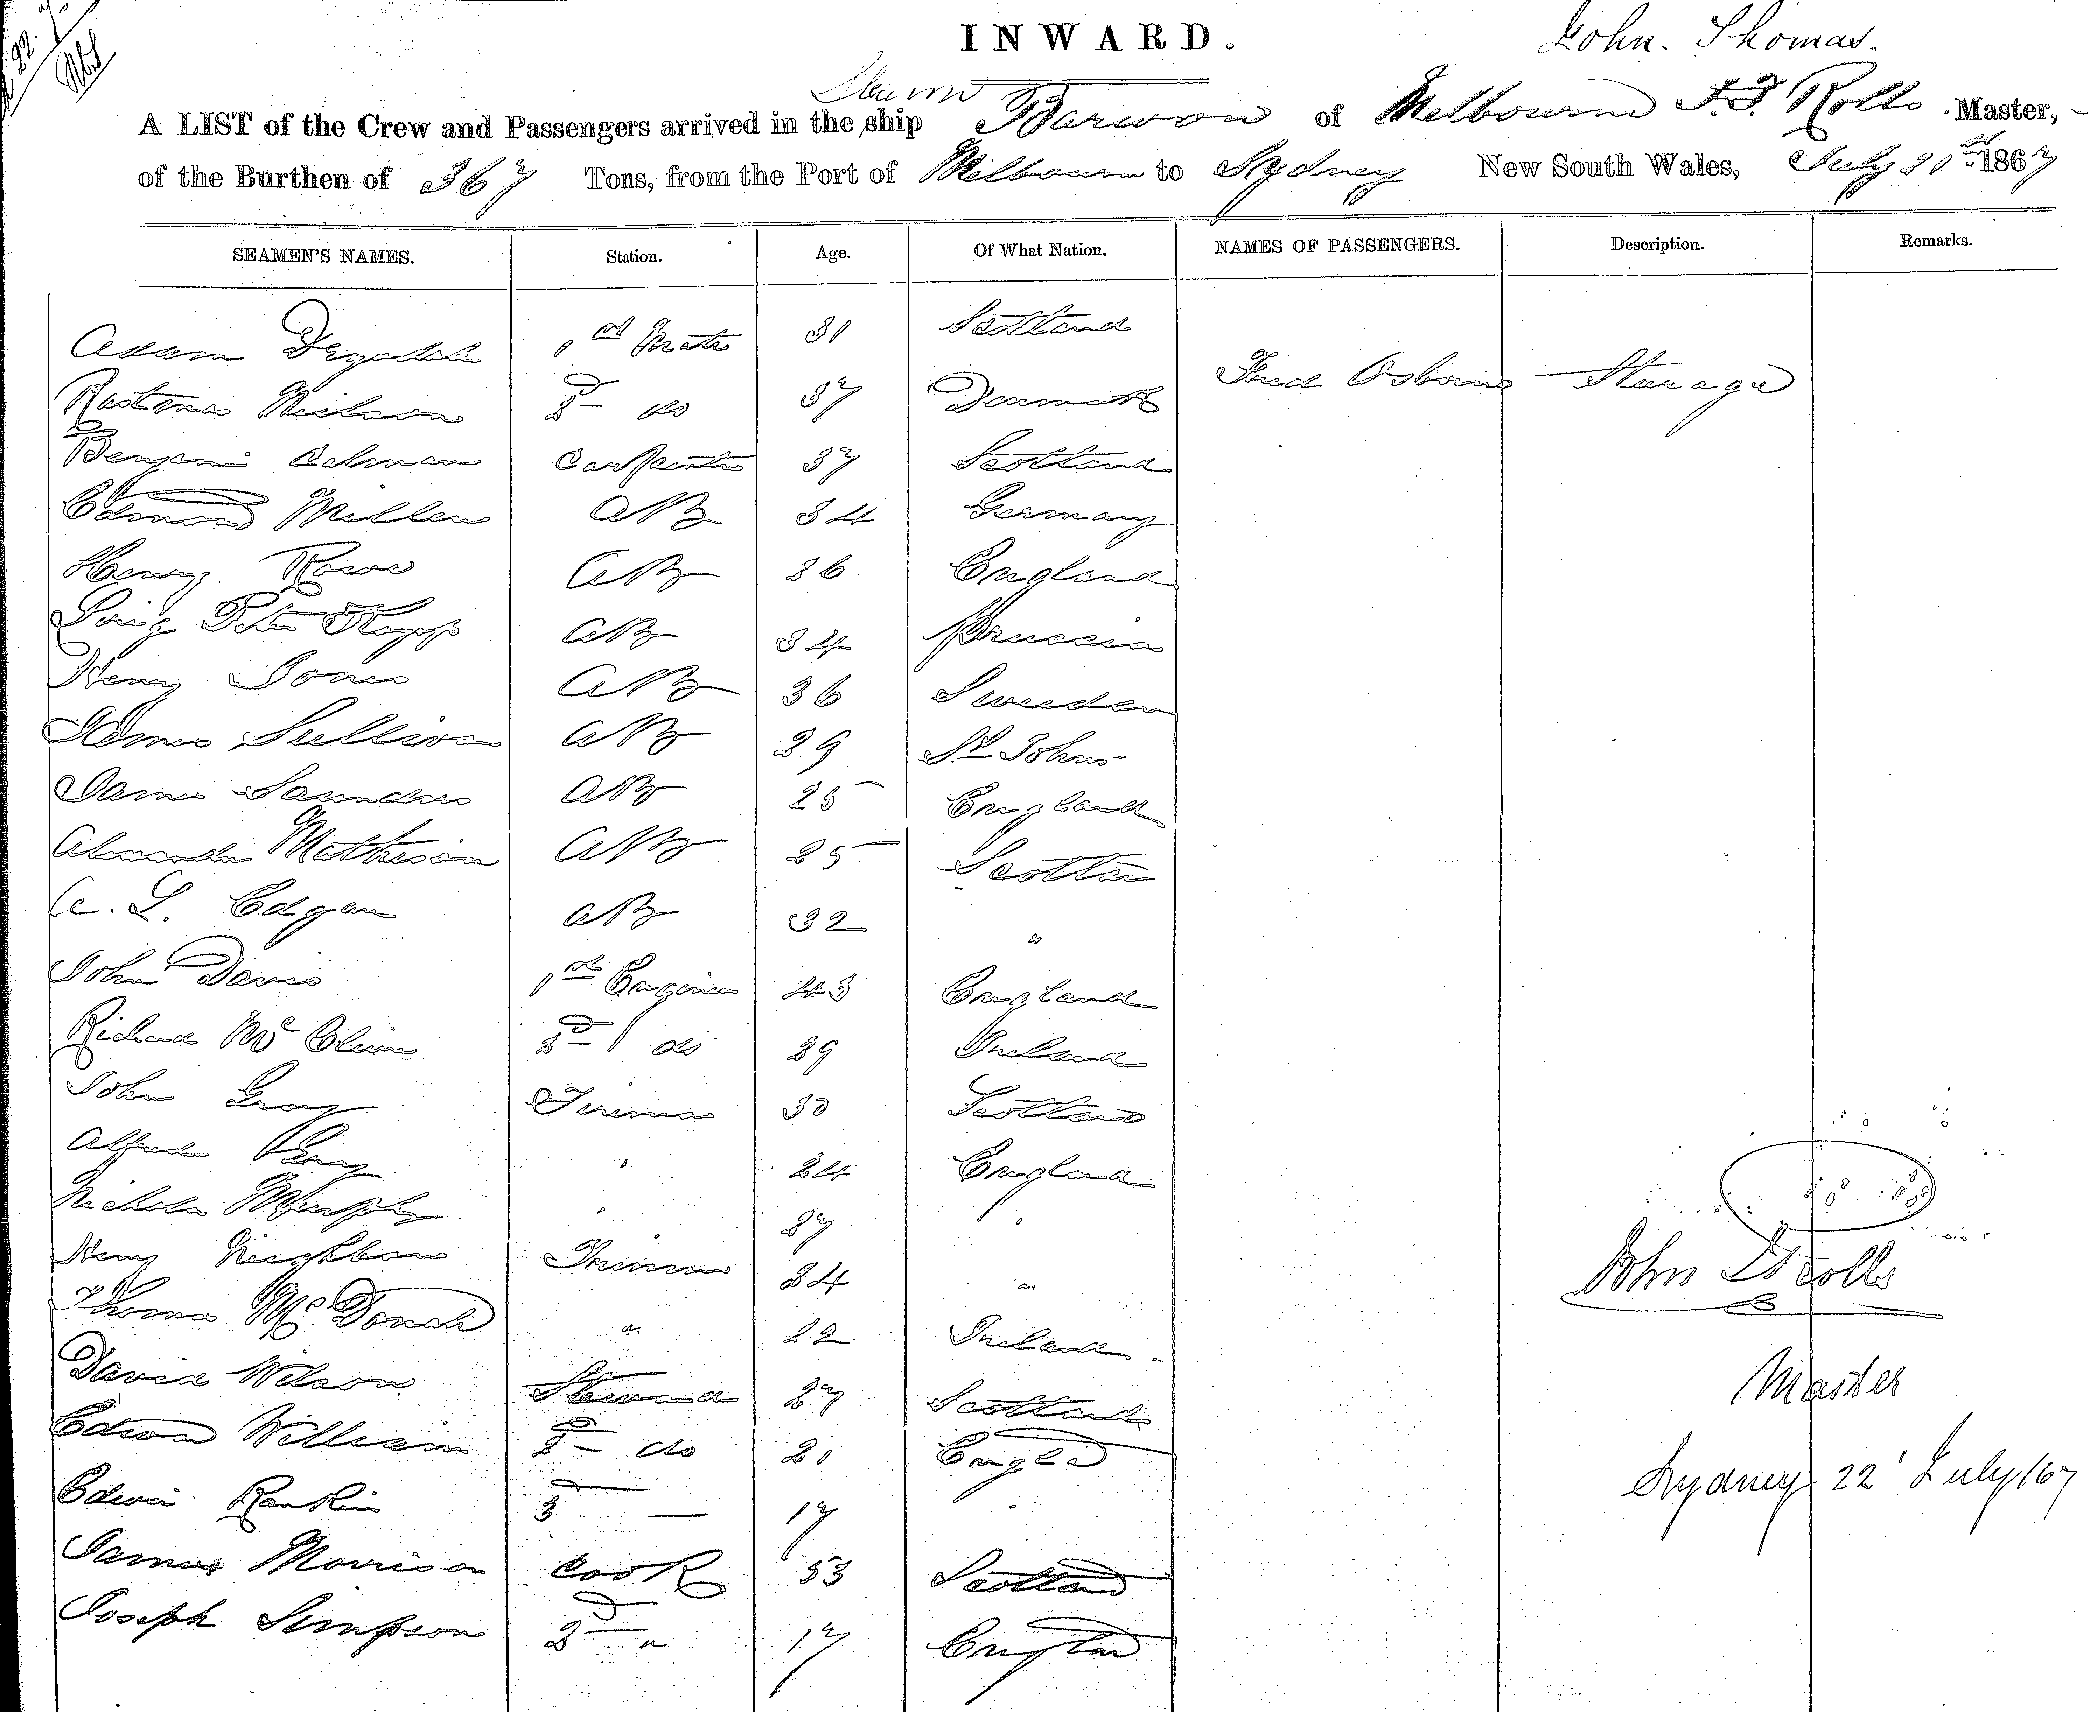 INWARD.
John. Thomas.
Steam
A LIST of the Crew and Passengers arrived in the ship Barwon of Melbourne J. T. Rolls Master,
of the Burthen of 367 Tons, from the Port of Melbourn to Sydney New South Wales, July 1867
SEAMEN'S NAMES. Station. Age. Of What Nation. NAMES OF PASSENGERS. Description. Remarks.
Adam Drysdale 1st Mate 31 Scotland
Fred Osborne Sturage
Neilson 2D do 37 Denmark
Benjami Carpenter 37 Scotland
Edmond Miller AB 34 Germany
Henry Rowe AB 36 England
Peter AB 34 Prussia
Henry Jones AB 36 Sweden
Sullivan AB 29 St Johns
James Saunders AB 25 England
Alexander Mathieson AB 25 Scotlan
L. Edgar AB 32 "
John Davis 1st Engineer 43 England
Richard Mc 2D do 29 Ireland
John Gray Fireman 30 Scotland
Alfred Perry " 24 England
Nicholas Murphy " 27 "
Henry Neighbour Trimmer 24 "
Thomas McDonah " 22 Ireland
David Wilson Steward 27 Scotland
Edwin William 2D do 20 Engld
Edwin Rankin 3D — 17 "
James Morrison Cook 53 Scotland
Joseph Simpson 2D " 17 Englan
John Rolls
Master
Sydney 22 July /67